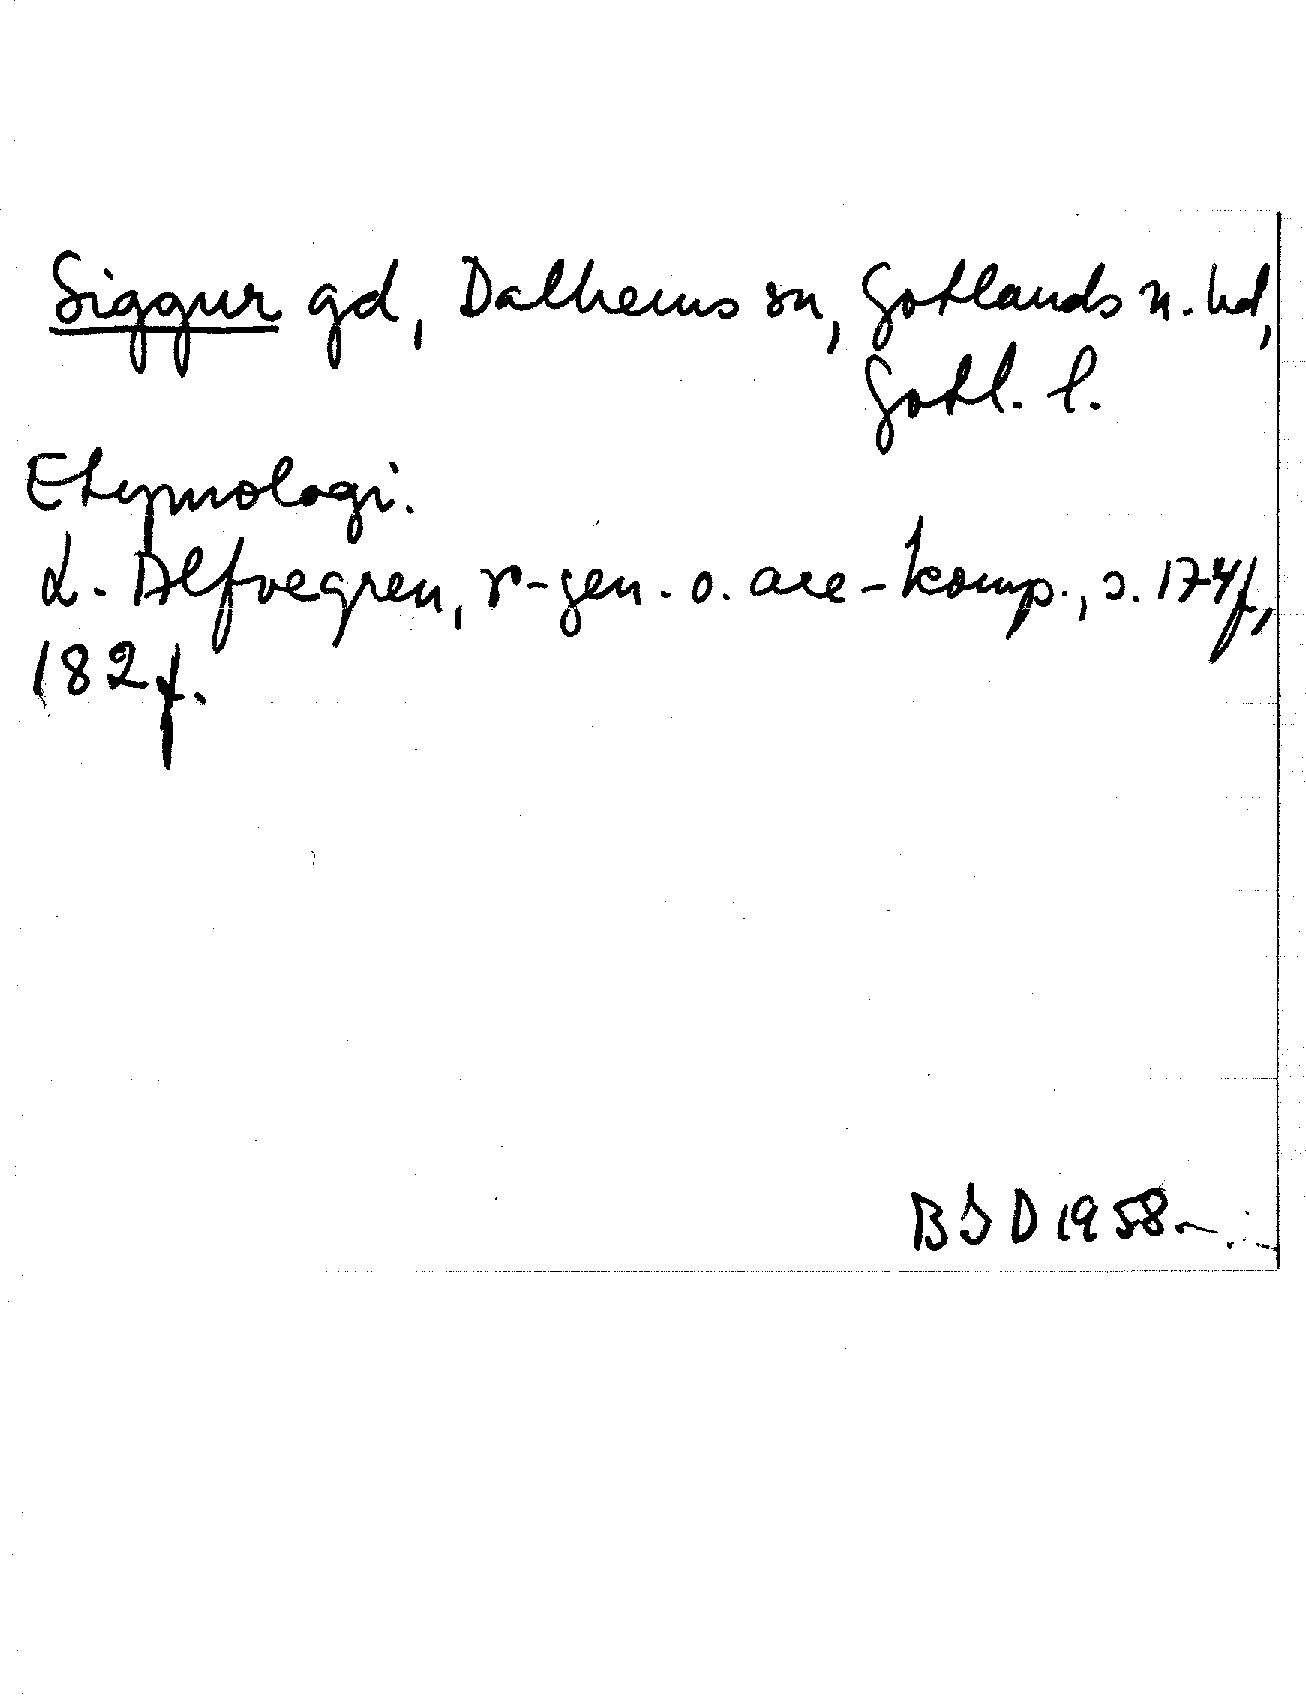 Siggur gd, Dalhems sn, Gotlands n. hd,
Gotl. l.
Etymologi.
L. Alfvegren, r-gen. o. are-komp., s. 174f,
182f.
BSD 1958